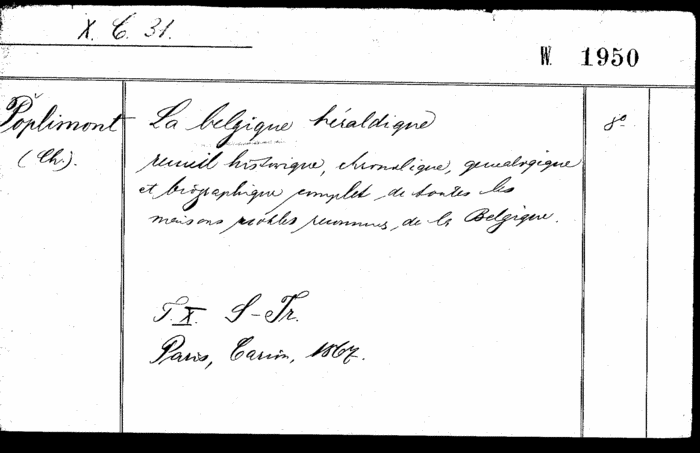 X. C. 31.
W. 1950
Poplimont
(Ch.).
La belgique héraldique
8º
recueil historique, chronologique, genealogique
et biographique complet de toutes les
maisons nobles reconnues de la Belgique.
T. X. S-Tr.
Paris, Carion, 1867.